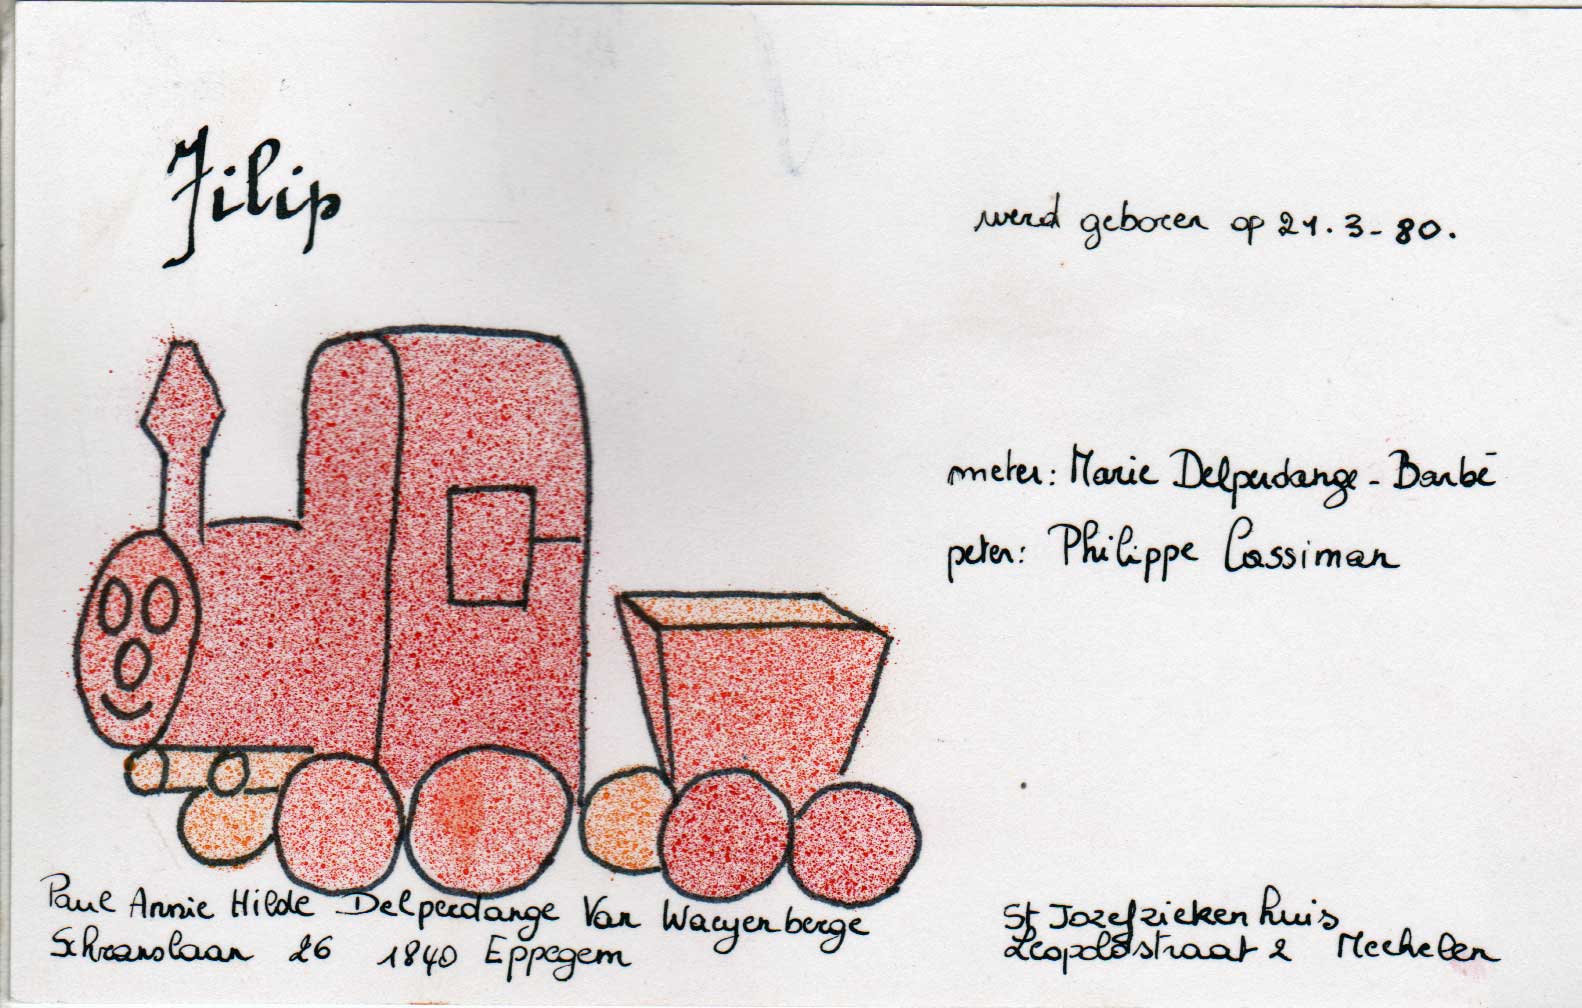 Filip
werd geboren op 21.3-80.
meter: Marie Delperdange - Barbé
peter: Philippe Cassiman
Paul Annie Hilde Delperdange Van Waeyenberge
Schranslaan 26 1840 Eppegem
St Jozefziekenhuis
Leopoldstraat 2 Mechelen